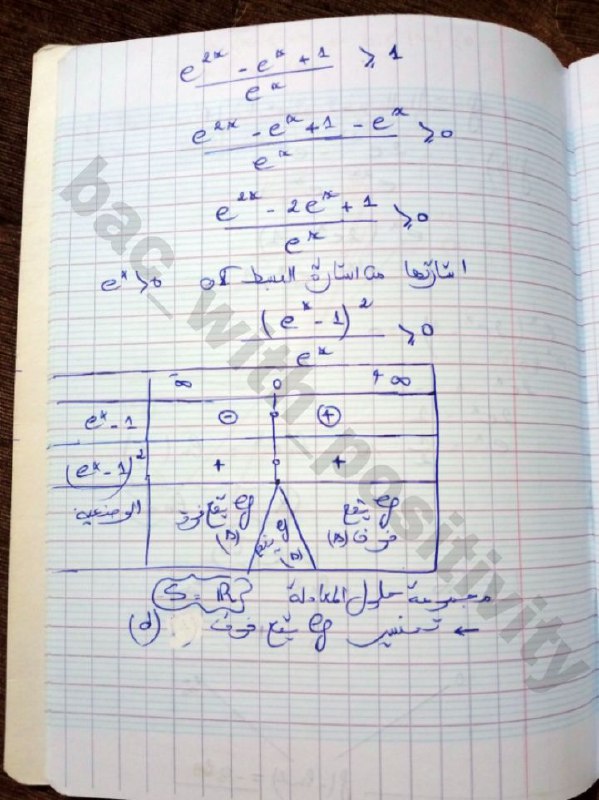 e^{2x} - e^x + 1 / e^x ≥ 1
e^{2x} - e^x + 1 - e^x / e^x ≥ 0
e^{2x} - 2e^x + 1 / e^x ≥ 0
اشارتها من اشارة البسط لأن e^x > 0
(e^x - 1)^2 / e^x ≥ 0
-∞ 0 +∞
e^x - 1 - 0 +
(e^x - 1)^2 + 0 +
الوضعية Cg يقع فوق (Δ) Cg (Δ) Cg يقع فوق (Δ)
مجموعة حلول المعادلة {S = R}
← تفسير Cg يقع فوق (d)
bac_with_positivity